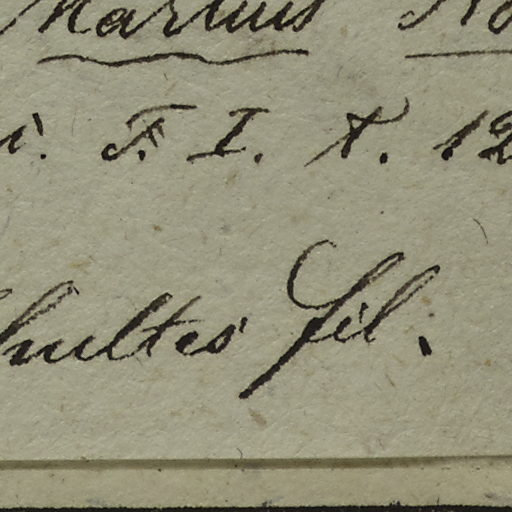 Martius
i. F. I. t. 12
hultes fil.